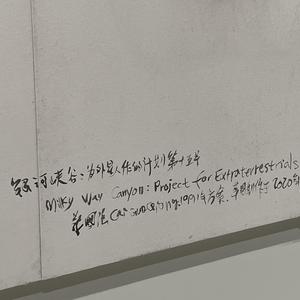 银河峡谷：为外星人作的计划第十五号
Milky Way Canyon: Project for Extraterrestrials
蔡國强 Cai 1991年方案，草圖制作于2020年